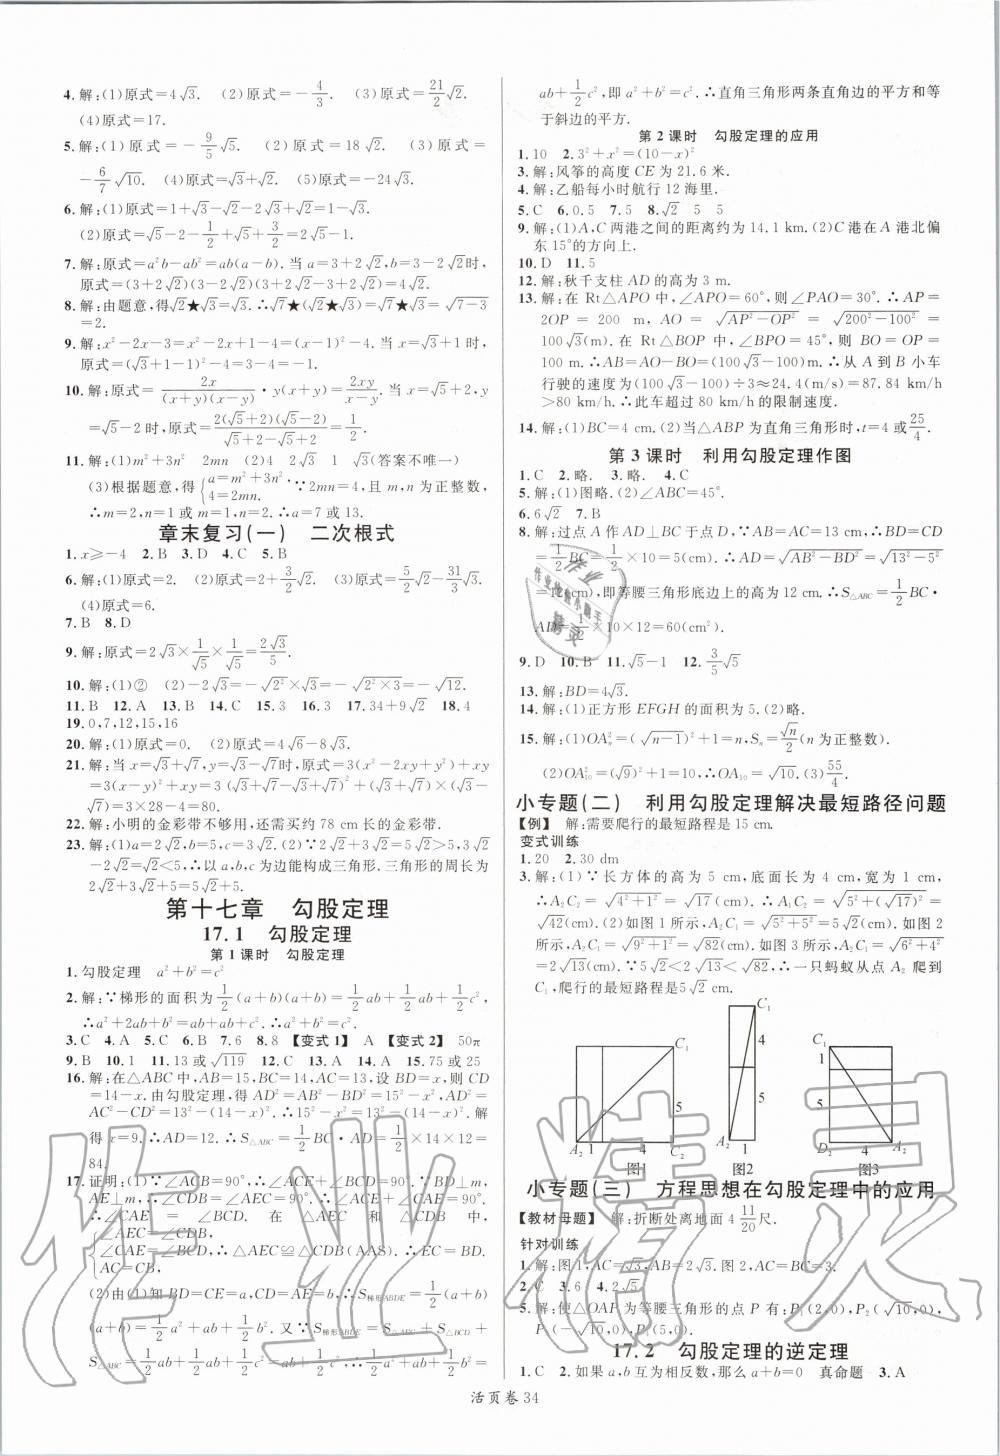 4. 解:(1)原式=4√3. (2)原式=-4/3. (3)原式=21/2√2.
(4)原式=17.
5. 解:(1)原式=-9/5√5. (2)原式=18√2. (3)原式=
-6/7√10. (4)原式=√3+√5. (5)原式=-24√3.
6. 解:(1)原式=1+√3-√2-2√3+√2=1-√3.
(2)原式=√5-2-1/2+√5+3/2=2√5-1.
7. 解:原式=a²b-ab²=ab(a-b).当a=3+2√2,b=3-2√2时,
原式=(3+2√2)(3-2√2)(3+2√2-3+2√2)=4√2.
8. 解:由题意,得√2★√3=√3.∴√7★(√2★√3)=√7★√3=√7-3
=2.
9. 解:x²-2x-3=x²-2x+1-4=(x-1)²-4.当x=√3+1时,
原式=(√3+1-1)²-4=3-4=-1.
10. 解:原式=2x/(x+y)(x-y)·y(x+y)=2xy/x-y.当x=√5+2,y
=√5-2时,原式=2(√5+2)(√5-2)/√5+2-√5+2=1/2.
11. 解:(1)m²+3n² 2mn (2)4 2 1 1(答案不唯一)
(3)根据题意,得{a=m²+3n², 4=2mn. ∵2mn=4,且m,n为正整数,
∴m=2,n=1或m=1,n=2.∴a=7或13.
章末复习(一) 二次根式
1. x≥-4 2. B 3. D 4. C 5. B
6. 解:(1)原式=2. (2)原式=2+3/2√2. (3)原式=5/2√2-31/3√3.
(4)原式=6.
7. B 8. D
9. 解:原式=2√3×1/√5×1/√5=2√3/5.
10. 解:(1)② (2)-2√3=-√2²×√3=-√2²×3=-√12.
11. B 12. A 13. B 14. C 15. 3 16. 3 17. 34+9√2 18. 4
19. 0,7,12,15,16
20. 解:(1)原式=0. (2)原式=4√6-8√3.
21. 解:当x=√3+√7,y=√3-√7时,原式=3(x²-2xy+y²)+xy
=3(x-y)²+xy=3(√3+√7-√3+√7)²+(√3+√7)(√3-
√7)=3×28-4=80.
22. 解:小明的金彩带不够用,还需买约78 cm长的金彩带.
23. 解:(1)a=2√2,b=5,c=3√2. (2)∵2√2+3√2=5√2>5,3√2
-2√2=√2<5,∴以a,b,c为边能构成三角形.三角形的周长为
2√2+3√2+5=5√2+5.
第十七章 勾股定理
17.1 勾股定理
第1课时 勾股定理
1. 勾股定理 a²+b²=c²
2. 解:∵梯形的面积为1/2(a+b)(a+b)=1/2ab+1/2ab+1/2c²,
∴a²+2ab+b²=ab+ab+c².∴a²+b²=c².
3. C 4. A 5. C 6. B 7. 6 8. 8 【变式1】 A 【变式2】 50π
9. B 10. 1 11. 13或√119 12. C 13. A 14. A 15. 75或25
16. 解:在△ABC中,AB=15,BC=14,AC=13,设BD=x,则CD
=14-x.由勾股定理,得AD²=AB²-BD²=15²-x²,AD²=
AC²-CD²=13²-(14-x)².∴15²-x²=13²-(14-x)².解
得x=9.∴AD=12.∴S△ABC=1/2BC·AD=1/2×14×12=
84.
17. 证明:(1)∵∠ACB=90°,∴∠ACE+∠BCD=90°.∵BD⊥m,
AE⊥m,∴∠AEC=∠CDB=90°,∴∠CAE+∠ACE=90°.
∴∠CAE=∠BCD. 在△AEC和△CDB中,
{∠AEC=∠CDB, ∠CAE=∠BCD, AC=CB, ∴△AEC≌△CDB(AAS).∴EC=BD.
(2)由(1)知BD=CE=a,CD=AE=b,∴S梯形ABDE=1/2(a+b)
(a+b)=1/2a²+ab+1/2b².又∵S梯形ABDE=S△AEC+S△BCD+
S△ABC=1/2ab+1/2ab+1/2c²=ab+1/2c²,∴1/2a²+ab+1/2b²=
ab+1/2c²,即a²+b²=c².∴直角三角形两条直角边的平方和等
于斜边的平方.
第2课时 勾股定理的应用
1. 10 2. 3²+x²=(10-x)²
3. 解:风筝的高度CE为21.6米.
4. 解:乙船每小时航行12海里.
5. C 6. 0.5 7. 5 8. √2 5 5
9. 解:(1)A,C两港之间的距离约为14.1 km. (2)C港在A港北偏
东15°的方向上.
10. D 11. 5
12. 解:秋千支柱AD的高为3 m.
13. 解:在Rt△APO中,∠APO=60°,则∠PAO=30°.∴AP=
2OP=200 m,AO=√AP²-OP²=√200²-100²=
100√3(m).在Rt△BOP中,∠BPO=45°,则BO=OP=
100 m.∴AB=AO-BO=(100√3-100)m.∴从A到B小车
行驶的速度为(100√3-100)÷3≈24.4(m/s)=87.84 km/h
>80 km/h.∴此车超过80 km/h的限制速度.
14. 解:(1)BC=4 cm. (2)当△ABP为直角三角形时,t=4或25/4.
第3课时 利用勾股定理作图
1. C 2. 略. 3. 略. 4. C
5. 解:(1)图略. (2)∠ABC=45°.
6. 6√2 7. B
8. 解:过点A作AD⊥BC于点D,∵AB=AC=13 cm,∴BD=CD
=1/2BC=1/2×10=5(cm).∴AD=√AB²-BD²=√13²-5²
=12(cm),即等腰三角形底边上的高为12 cm.∴S△ABC=1/2BC·
AD=1/2×10×12=60(cm²).
9. D 10. B 11. √5-1 12. 3/5√5
13. 解:BD=4√3.
14. 解:(1)正方形EFGH的面积为5. (2)略.
15. 解:(1)OA²n=(√n-1)²+1=n,Sn=√n/2(n为正整数).
(2)OA²10=(√9)²+1=10,∴OA10=√10. (3)55/4.
小专题(二) 利用勾股定理解决最短路径问题
【例】 解:需要爬行的最短路程是15 cm.
变式训练
1. 20 2. 30 dm
3. 解:(1)∵长方体的高为5 cm,底面长为4 cm,宽为1 cm,
∴A₂C₂=√4²+1²=√17(cm).∴A₁C₂=√5²+(√17)²=
√42(cm). (2)如图1所示,A₂C₁=√5²+5²=5√2(cm).如图2
所示,A₂C₁=√9²+1²=√82(cm).如图3所示,A₂C₁=√6²+4²=
2√13(cm).∵5√2<2√13<√82,∴一只蚂蚁从点A₂爬到
C₁,爬行的最短路程是5√2 cm.
C₁
5
A₂ 1 4 C₂
图1
C₁
4
1
5
A₂
图2
C₁
1
5
D₂ 4 A₂
图3
小专题(三) 方程思想在勾股定理中的应用
【教材母题】 解:折断处离地面4 11/20尺.
针对训练
1. 解:图1,AC=√3,AB=2√3.图2,AC=BC=3.
2. C 3. 6 4. 2√5
5. 解:使△OAP为等腰三角形的点P有:P₁(2,0),P(√10,0),
P(-√10,0),P(5/2,0).
17.2 勾股定理的逆定理
1. C 2. 如果a,b互为相反数,那么a+b=0 真命题 3. A
活页卷 34
作业精灵